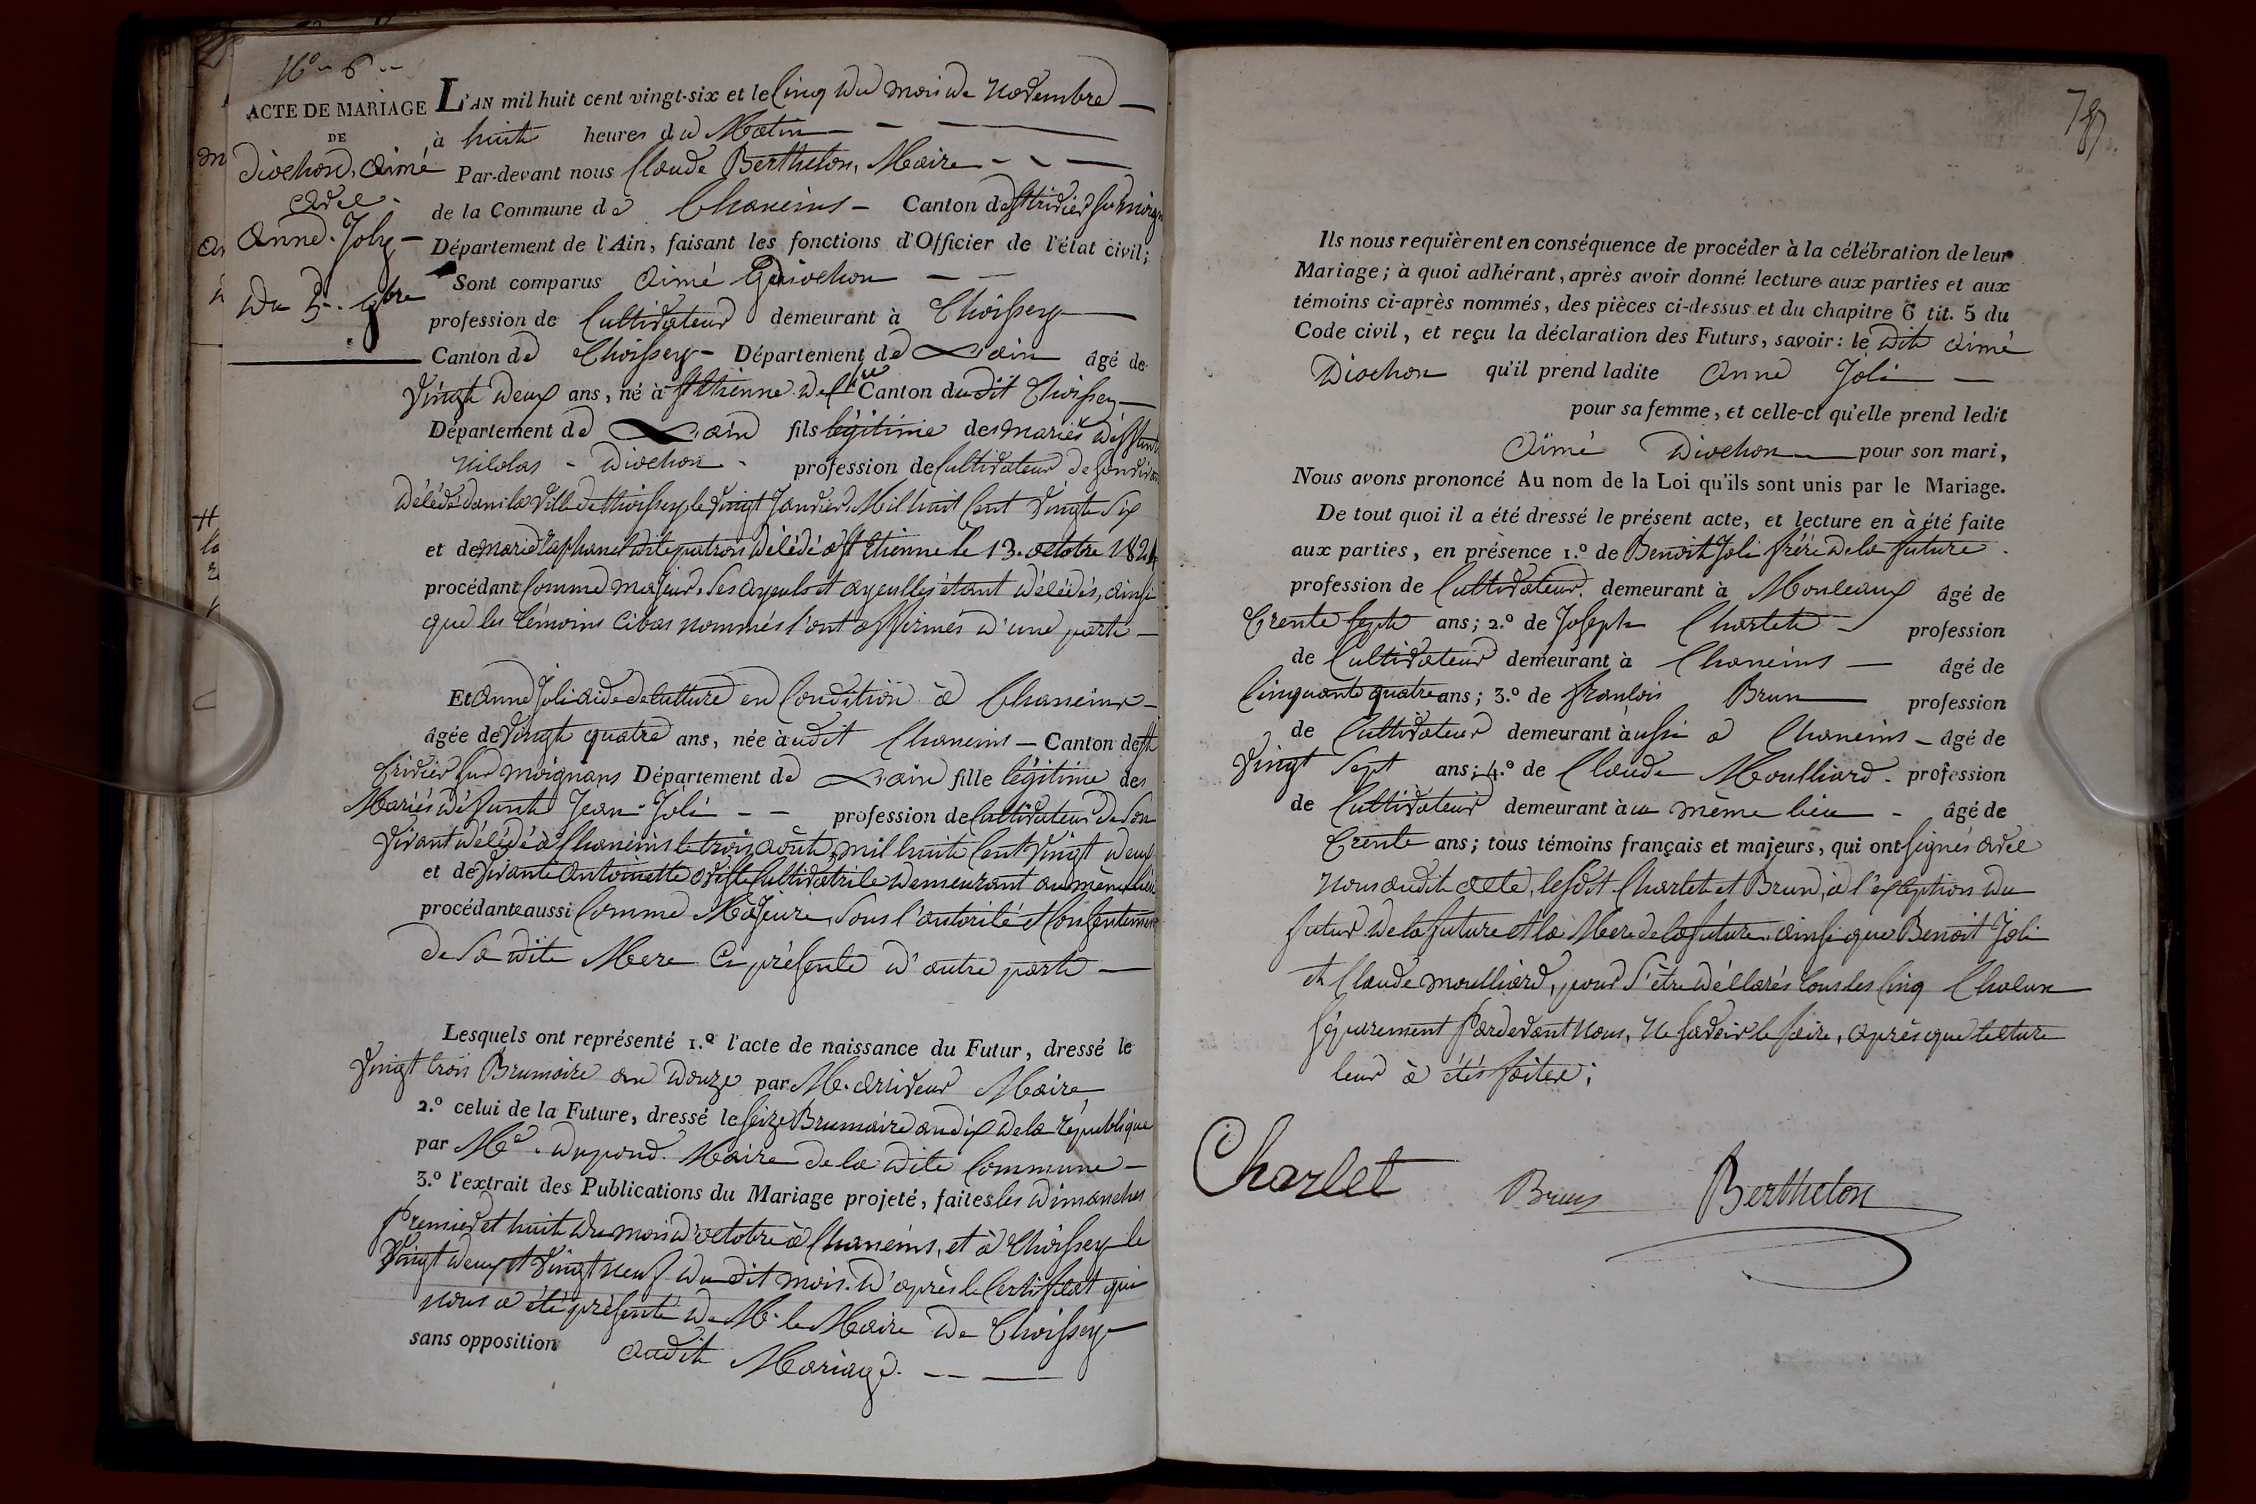 N.o 6
ACTE DE MARIAGE
DE
Diochon, Aimé
avec
Anne. Joly
Du 5. 9bre
L'AN mil huit cent vingt-six et le Cinq du mois de Novembre
à huit heures du Matin
Par-devant nous Claude Berthelon, Maire
de la Commune de Chaneins Canton de St trivier sur moignans
Département de l'Ain, faisant les fonctions d'Officier de l'état civil;
Sont comparus Aimé Diochon
profession de Cultivateur demeurant à Thoissey
Canton de Thoissey Département de L'ain âgé de
Vingt deux ans, né à St Etienne Canton dudit Thoissey
Département de L'ain fils légitime des mariés deffunts
Nicolas Diochon profession de Cultivateur de son vivant
décédé dans la Ville de Thoissey le Vingt Janvier Mil huit Cent Vingt Six
et de marie décédé à St Etienne le 13. octobre
procédant Comme majeur, Ses ayeuls et ayeulles étant décédés, ainsi
que les témoins cibas nommés l'ont affirmés d'une part
Et Anne Joli aide de culture en Condition à Chaneins
âgée de Vingt quatre ans, née audit Chaneins Canton de St
trivier sur moignans Département de L'ain fille légitime des
Mariés défunt Jean Joli profession de Cultivateur de Son
Vivant décédé à Chaneins le trois août mil huit Cent Vingt deux
et de Vivante Antoinette Cultivatrice demeurant au même lieu
procédante aussi Comme Majeure, Sous l'autorité et Consentement
de Sa dite Mere Ci présente d'autre part
Lesquels ont représenté 1.o l'acte de naissance du Futur, dressé le
Vingt trois Brumaire an douze par M. arriveur Maire
2.o celui de la Future, dressé le Seize Brumaire an dix de la république
par Mr. Dupond. Maire de la dite Commune
3.o l'extrait des Publications du Mariage projeté, faites les dimanches
Premier et huit du mois d'octobre à Chaneins, et à Thoissey le
Vingt deux et Vingt neuf du dit mois. d'après le Certificat qui
nous a été présenté de M. le Maire de Thoissey
sans opposition audit Mariage.
Ils nous requièrent en conséquence de procéder à la célébration de leur
Mariage; à quoi adhérant, après avoir donné lecture aux parties et aux
témoins ci-après nommés, des pièces ci-dessus et du chapitre 6 tit. 5 du
Code civil, et reçu la déclaration des Futurs, savoir: le dit Aimé
Diochon qu'il prend ladite Anne Joli
pour sa femme, et celle-ci qu'elle prend ledit
Aimé Diochon pour son mari,
Nous avons prononcé Au nom de la Loi qu'ils sont unis par le Mariage.
De tout quoi il a été dressé le présent acte, et lecture en à été faite
aux parties, en présence 1.o de Benoit Joli frère de la future
profession de Cultivateur demeurant à Monceaux âgé de
trente Sept ans; 2.o de Joseph Charlet profession
de Cultivateur demeurant à Chaneins âgé de
Cinquante quatre ans; 3.o de françois Brun profession
de Cultivateur demeurant aussi à Chaneins âgé de
Vingt Sept ans; 4.o de Claude Moulliard profession
de Cultivateur demeurant au même lieu âgé de
trente ans; tous témoins français et majeurs, qui ont Signés avec
nous audit acte, lesdit Charlet et Brun, à l'exception du
futur de la future et la Mere de la future ainsi que Benoit Joli
et Claude Moulliard, pour S'être déclarés tous les Cinq Chacun
Séparement Pardevant nous, Ne Savoir le faire, après que lecture
leur à étés faites;
Charlet Brun Berthelon